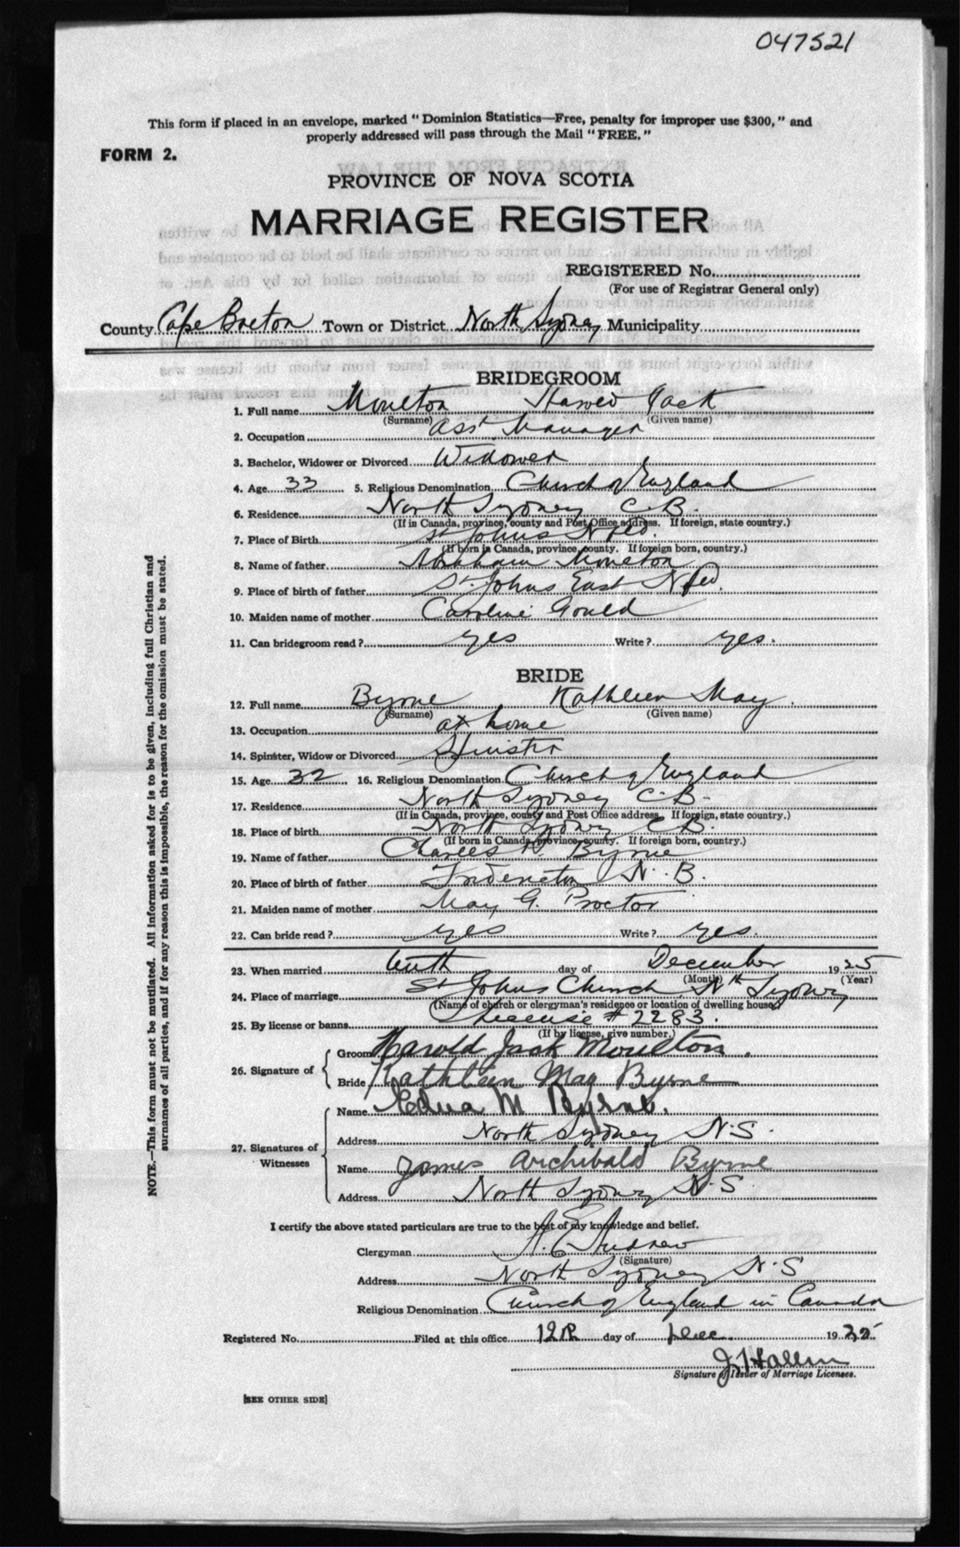 047521
This form if placed in an envelope, marked "Dominion Statistics—Free, penalty for improper use $300," and
properly addressed will pass through the Mail "FREE."
FORM 2.
PROVINCE OF NOVA SCOTIA
MARRIAGE REGISTER
REGISTERED No.
(For use of Registrar General only)
County Cape Breton Town or District North Sydney Municipality
BRIDEGROOM
1. Full name Moulton Harold Jack
(Surname) (Given name)
2. Occupation Asst. Manager
3. Bachelor, Widower or Divorced Widower
4. Age 33 5. Religious Denomination Church of England
6. Residence North Sydney C.B.
(If in Canada, province, county and Post Office address. If foreign, state country.)
7. Place of Birth St Johns Nfld.
(If born in Canada, province, county. If foreign born, country.)
8. Name of father Abraham Moulton
9. Place of birth of father St. Johns East Nfld.
10. Maiden name of mother Caroline Gould
11. Can bridegroom read? yes Write? yes.
BRIDE
12. Full name Byrne Kathleen May.
(Surname) (Given name)
13. Occupation at home
14. Spinster, Widow or Divorced Spinster
15. Age 32 16. Religious Denomination Church of England
17. Residence North Sydney C.B.
(If in Canada, province, county and Post Office address. If foreign, state country.)
18. Place of birth North Sydney C.B.
(If born in Canada, province, county. If foreign born, country.)
19. Name of father Charles Byrne
20. Place of birth of father Fredericton N.B.
21. Maiden name of mother May G. Proctor
22. Can bride read? yes Write? yes.
23. When married tenth day of December 1925
(Month) (Year)
24. Place of marriage St Johns Church, Nth Sydney
(Name of church or clergyman's residence or location of dwelling house)
25. By license or banns License # 2283.
(If by license, give number.)
26. Signature of
Groom Harold Jack Moulton.
Bride Kathleen May Byrne
27. Signatures of Witnesses
Name Edna M Byrne.
Address North Sydney N.S.
Name James Archibald Byrne
Address North Sydney N.S.
I certify the above stated particulars are true to the best of my knowledge and belief.
Clergyman A. E. Andrew
(Signature)
Address North Sydney N.S
Religious Denomination Church of England in Canada
Registered No. Filed at this office 12th day of Dec. 1925
Signature of Issuer of Marriage Licenses.
[SEE OTHER SIDE]
NOTE.—This form must not be mutilated. All information asked for is to be given, including full Christian and
surnames of all parties, and if for any reason this is impossible, the reason for the omission must be stated.